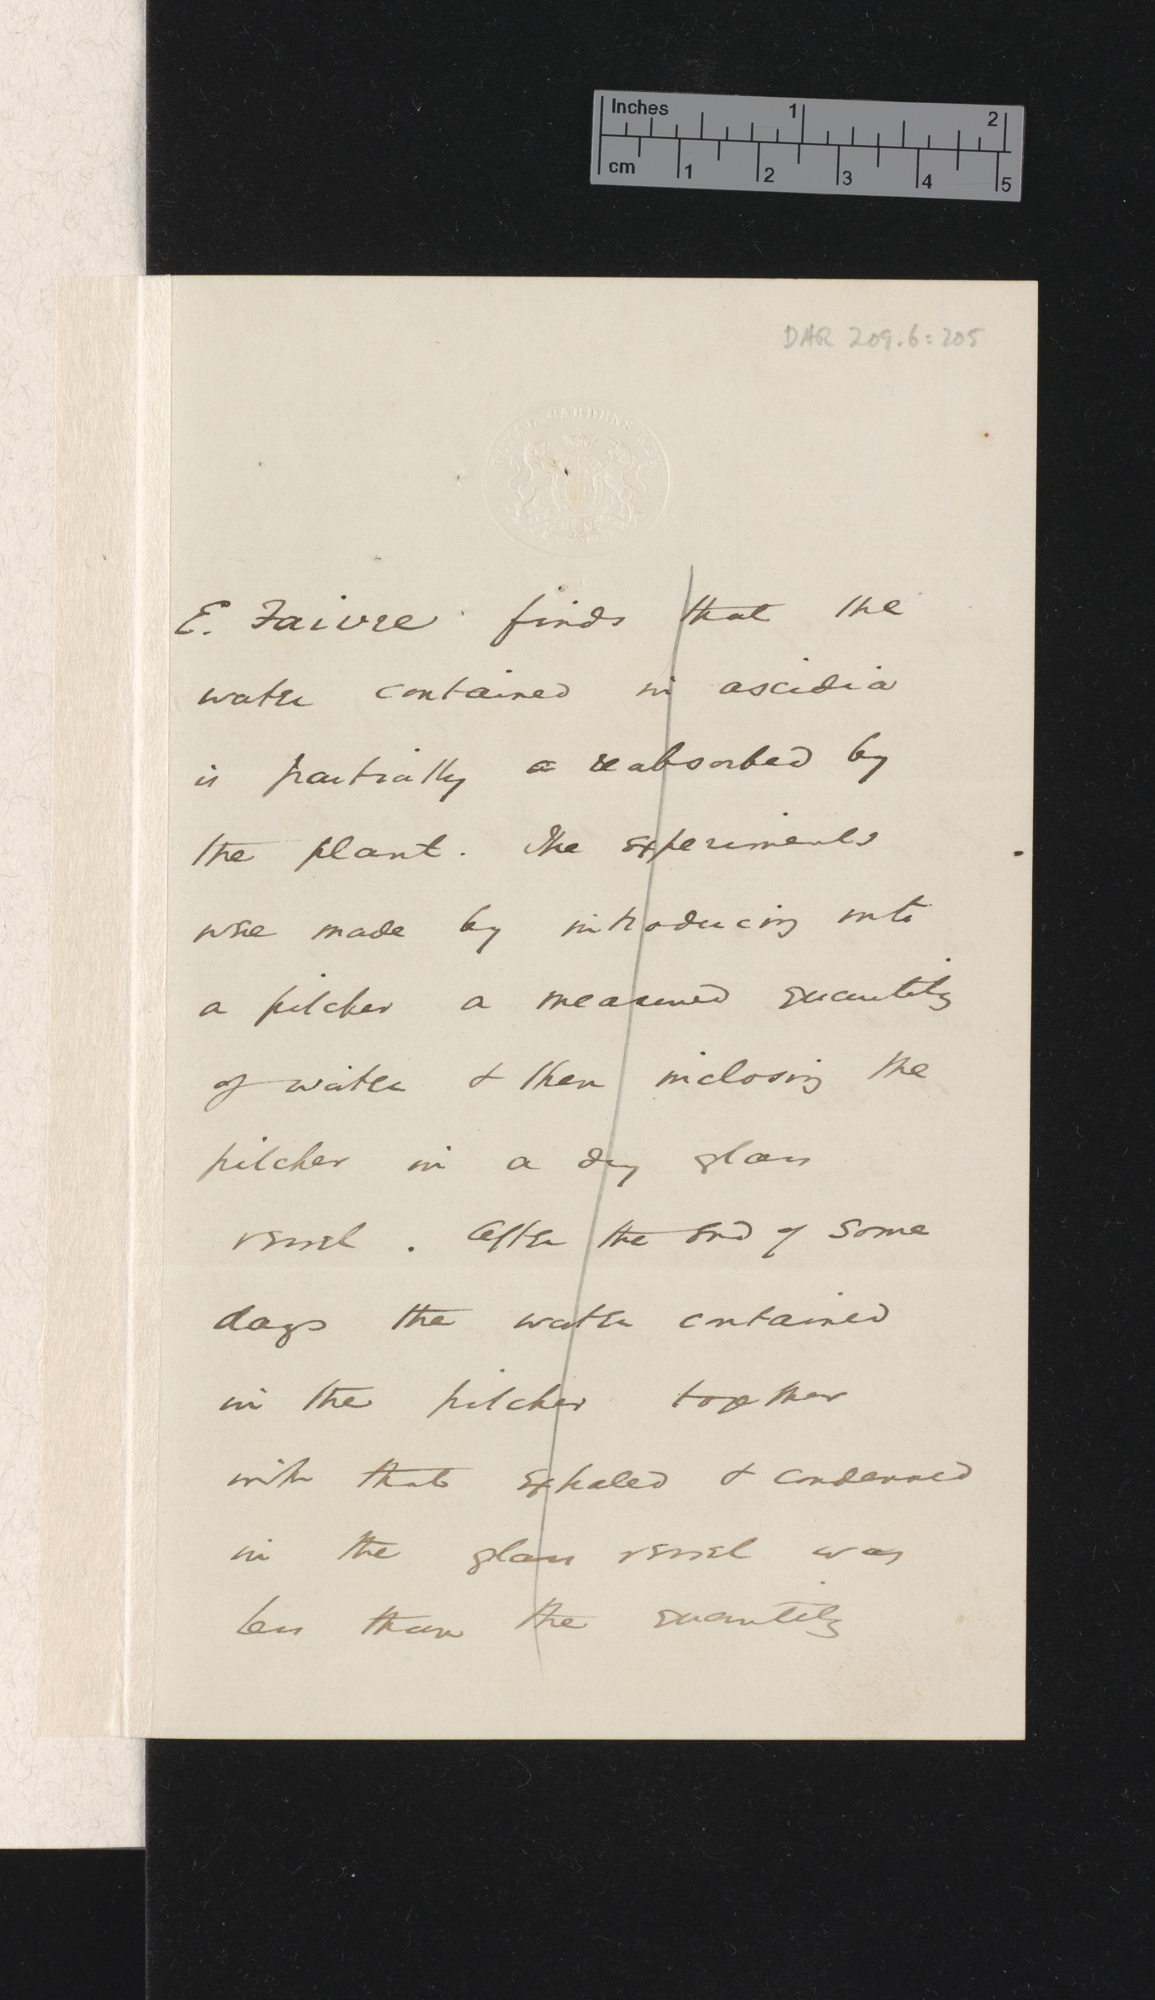 Inches 1 2
cm 1 2 3 4 5
DAR 209.6:205
GARDENS
E. Faivre finds that the
water contained in ascidia
is partially a reabsorbed by
the plant. The experiments
were made by introducing into
a pitcher a measured quantity
of water & then inclosing the
pitcher in a dry glass
vessel. After the end of some
days the water contained
in the pitcher together
with that exhaled & condensed
in the glass vessel was
less than the quantity